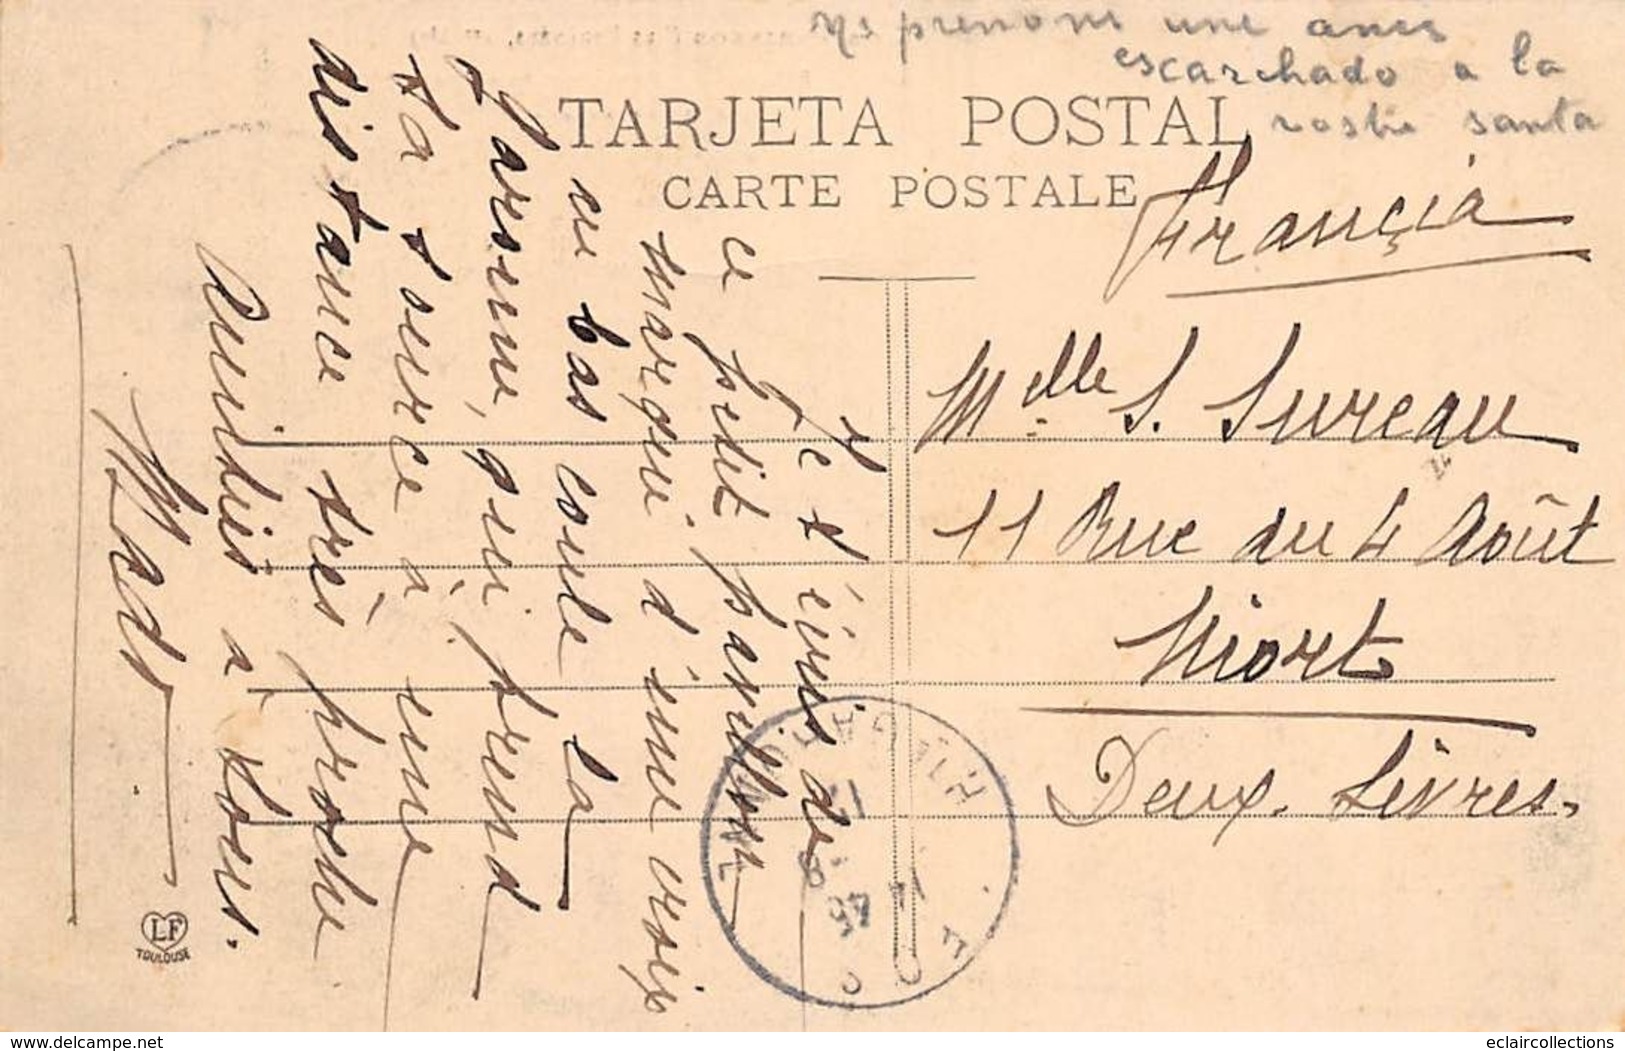 prenons une anis
escarchado a la
santa
TARJETA POSTAL
CARTE POSTALE
Francia
Melle S. Sureau
11 Rue du 4 Août
Niort
Deux-Sèvres.
Je t'écris de
ce petit pavillon
marqué d'une croix
en bas coule la
Garonne, qui prend
sa source à une
distance très proche
Amitiés à tous.
LF
TOULOUSE
delcampe.net
eclaircollections